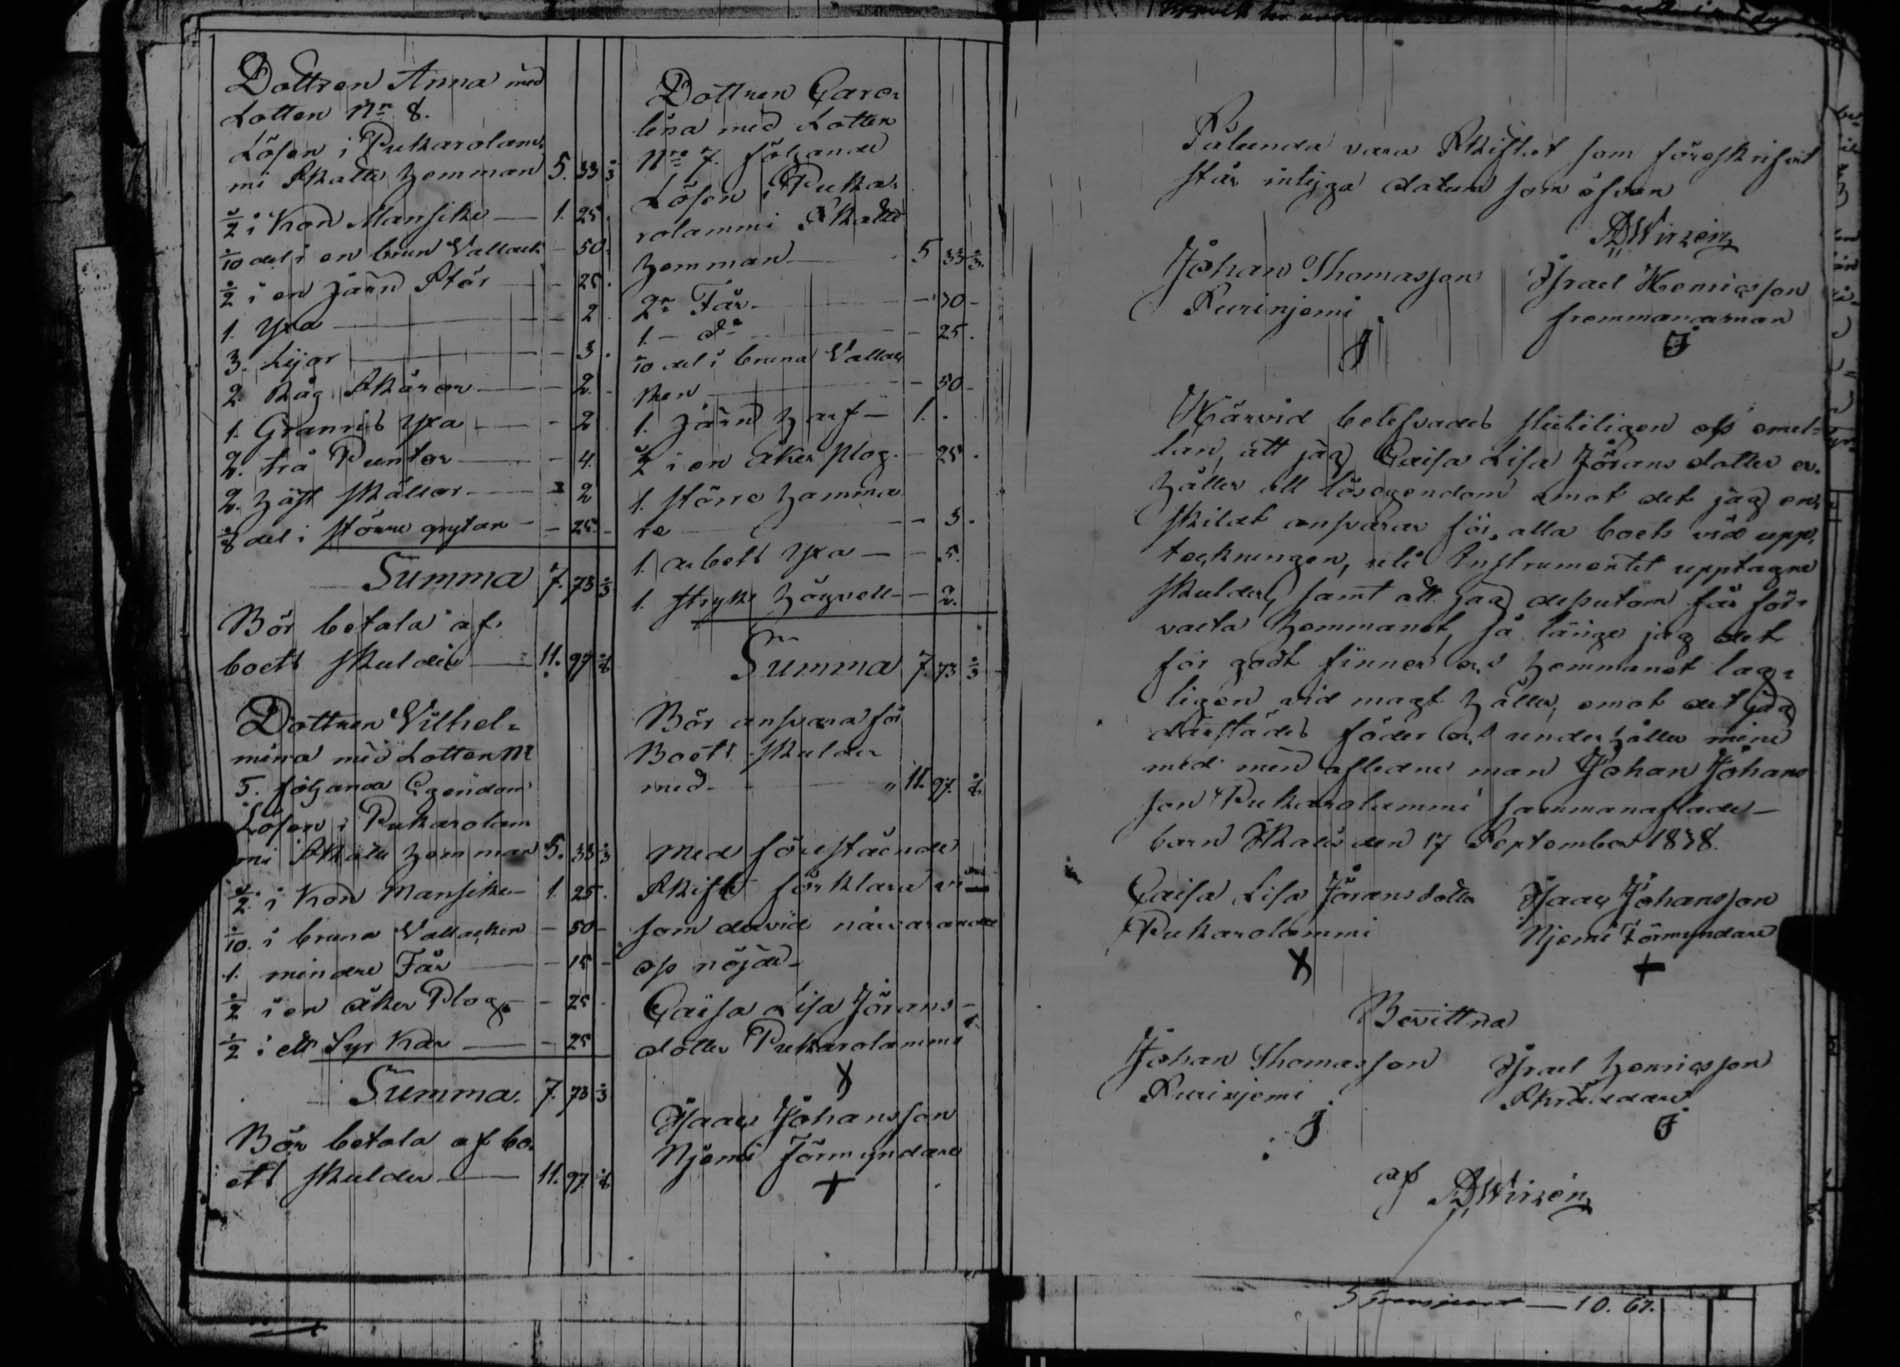 Dottren Anna med
Lotten Nr 8.
Lösen i Pukarolam,
mi Skatte Hemman 5. 33 1/3
1/2 i Kon Mansike — 1. 25.
1/10 del i en brun Vallack — 50.
1/2 i en Järn Stör — 25.
1. Yxa — 2
3. Lijor — 3.
2 Råg Skäror — 2.
1. Grannis Yxa — 2
2. trä Puntor — 4.
2. Häst skällor — 2
1/8 del i större grytan — 25 —
Summa 7. 73 1/3
Bör betala af
boets skulder — 11. 97
Dottren Vilhel=
mina med Lotten Nr
5. följande Egendom
Lösen i Pukarolam
mi Skatte Hemman 5. 33 1/3
1/2 i Kon Mansike — 1. 25.
1/10 i bruna Vallacken — 50 —
1. mindre Får — 15 —
1/2 i en åker Plog — 25 —
1/2 i ett Kar — 25
Summa. 7. 73 1/3
Bör betala af bo,
ets skulder — 11. 97
Dottren Caro=
lina med Lotten
Nro 7. följande
Lösen i Puka=
rolammi Skatte
Hemman — 5 33 1/3.
2n Får — 30 —
1. — do — 25.
1/10 del i bruna Vallac,
ken — 50 —
1. Järn Harf — 1. .
1/2 i en åker plog — 25.
1. större Hamma
re — 3.
1. arbets Yxa — 5.
1. stryk Höyvell — 2.
Summa 7. 73 1/3 —
Bör ansvara för
Boets skulder
med — 11. 97.
Med förestående
Skifte förklara vi
som dervid närvarande
oss nöjde —
Caisa Lisa Jörans =
dotter Pukarolammi
X
Isaac Johansson
Njemi Förmyndare
+
Sålunda vara Skiftet som föreskrifvit
står intyga datum som ofvan
Wirzén
Johan Thomasson
Israel Henricsson
Härvid belefvades slutiligen oss emel=
lan, att jag Caisa Lisa Jörans dotter er=
håller all lösegendom emot det jag en,
skildt ansvarar för, alla boets vid upp,
teckningen, uti Instrumentet upptagne
skulder, samt att jag desutom får för=
valta Hemmanet, så länge jag det
för godt finner och Hemmanet lag=
ligen vid magt håller, emot det jag
därstädes föder och underhåller mine
med min aflidne man Johan Johans
son Pukarolammi sammanaflade —
barn Skall den 17 September 1838.
Caisa Lisa Jörans dotter
Pukarolammi
X
Isaac Johansson
Njemi Förmyndare
+
Bevittna
Johan Thomasson
Israel Henricsson
Skräddare
af Wirzén
— 10. 67.